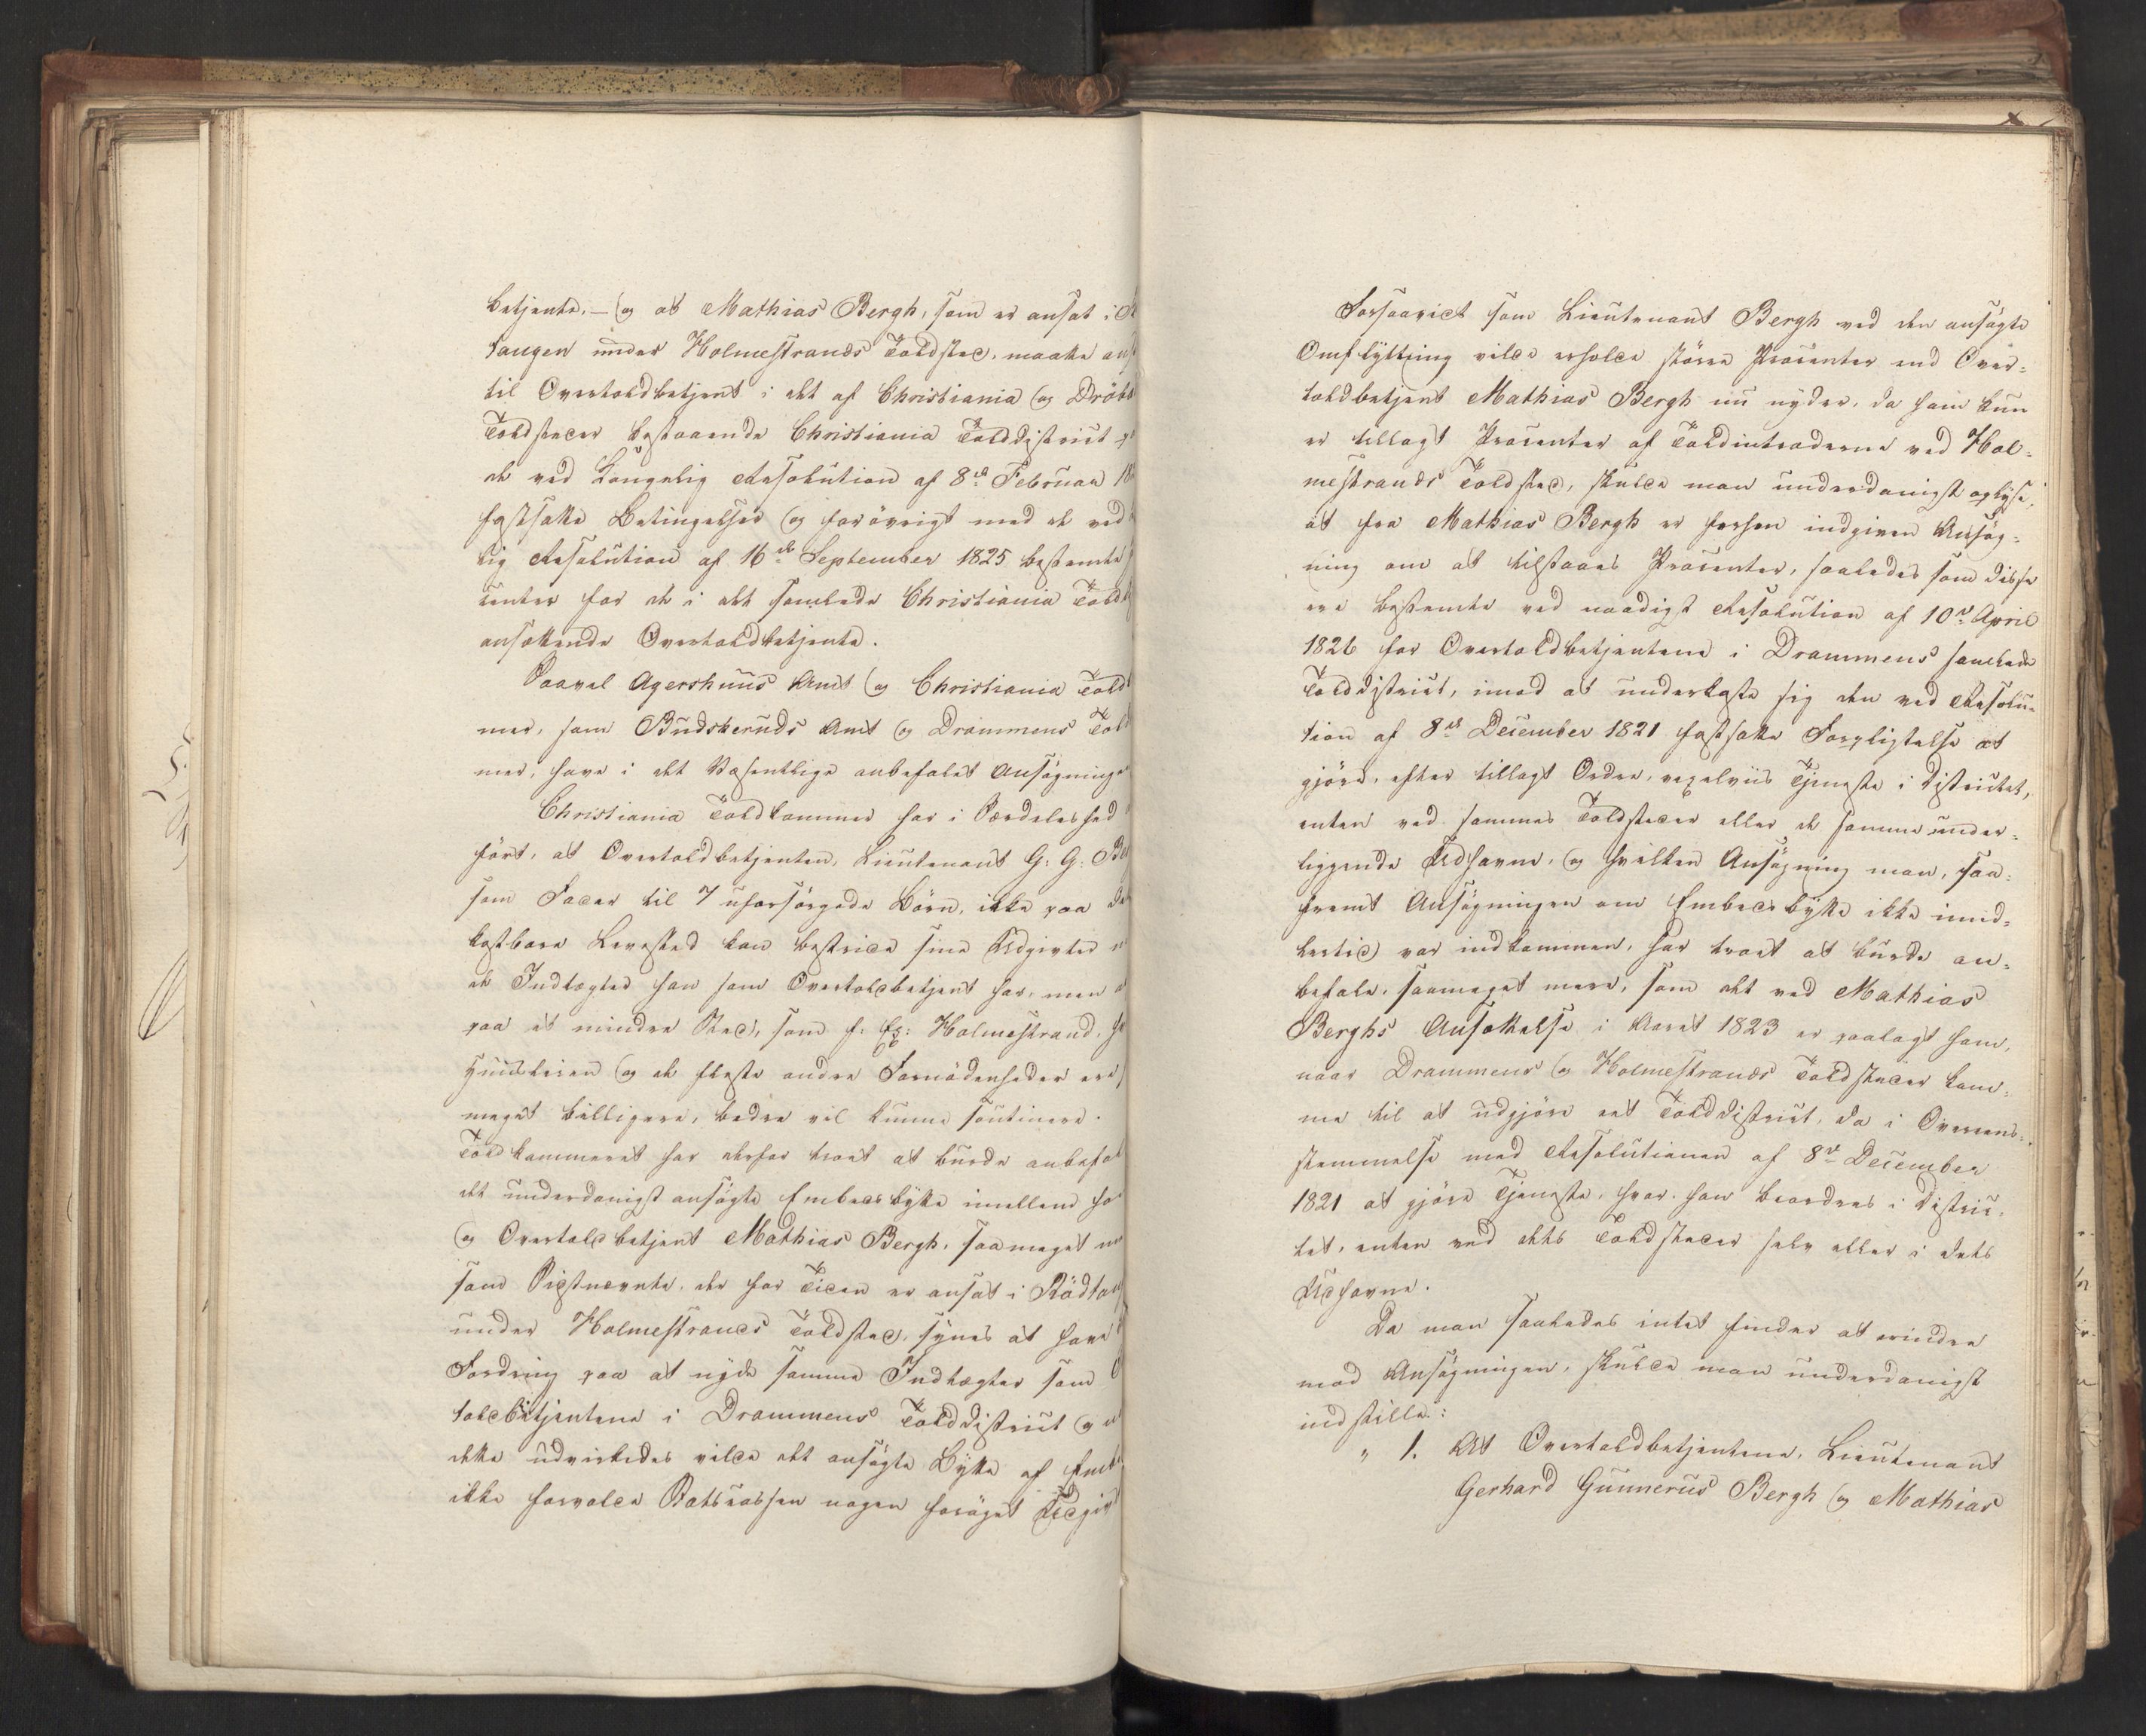 betjente, – og at Mathias Bergh, som er ansat i
tangen under Holmestrands Toldsted, maatte
til Overtoldbetjent i det af Christiania og
Toldsteder bestaaende Christiania Tolddistrict
de ved Kongelig Resolution af 8de Februar
fastsatte Betingelser og forövrigt med de ved
lig Resolution af 16de September 1825 bestemte
center for de i det samlede Christiania
ansættende Overtoldbetjente.
Saavel Agershuus Amt og Christiania
mer, som Budskeruds Amt og Drammens
mer, have i det Væsentlige anbefalet
Christiania Toldkammer har i Særdeleshed
fört, at Overtoldbetjenten, Lieutenant G: G:
som Fader til 7 uforsörgede Börn, ikke paa
kostbare Levested kan bestride sine Udgivter
de Indtægter han som Overtoldbetjent har, men
paa et mindre Sted, som f: Ex: Holmestrand,
Huusleien og de fleste andre Fornödenheder ere
meget billigere, bedre vil kunne soutinere.
Toldkammeret har derfor troet at burde
det underdanigst ansögte Embedsbytte imellem
og Overtoldbetjent Mathias Bergh, saameget
som Sidstnævnte, der for Tiden er ansat i
under Holmestrands Toldsted, synes at have
Fordring paa at nyde samme Indtægter som
toldbetjentene i Drammens Tolddistrict og
dette udvirkedes vilde det ansögte Bytte af
ikke forvolde Statscassen nogen foröget
Forsaavidt som Lieutenant Bergh ved den ansögte
Omflyttning vilde erholde större Procenter end Over-
toldbetjent Mathias Bergh nu nyder, da ham kun
er tillagt Procenter af Toldintraderne ved Hol-
mestrands Toldsted, skulde man underdanigst oplyse,
at fra Mathias Bergh er forhen indgiven Ansög-
ning om at tilstaaes Procenter, saaledes som disse
ere bestemte ved naadigst Resolution af 10de April
1826 for Overtoldbetjentene i Drammens samlede
Tolddistrict, imod at underkaste sig den ved Resolu-
tion af 8de December 1821 fastsatte Forpligtelse at
gjöre, efter tillagt Ordre, vexelviis Tjeneste i Districtet,
enten ved sammes Toldsteder eller de samme under-
liggende Udhavne, og hvilken Ansögning man, saa-
fremt Ansögningen om Embedsbytte ikke imid-
lertid var indkommen, har troet at burde an-
befale, saameget mere, som det ved Mathias
Berghs Ansættelse i Aaret 1823 er paalagt ham,
naar Drammens og Holmestrands Toldsteder kom-
me til at udgjöre eet Tolddistrict, da i Overeens-
stemmelse med Resolutionen af 8de December
1821 at gjöre Tjeneste, hvor han beordres i Distric-
tet, enten ved dets Toldsteder selv eller i dets
Udhavne.
Da man saaledes intet finder at erindre
mod Ansögningen, skulde man underdanigst
indstille:
„ 1. At Overtoldbetjentene, Lieutenant
Gerhard Gunnerus Bergh og Mathias